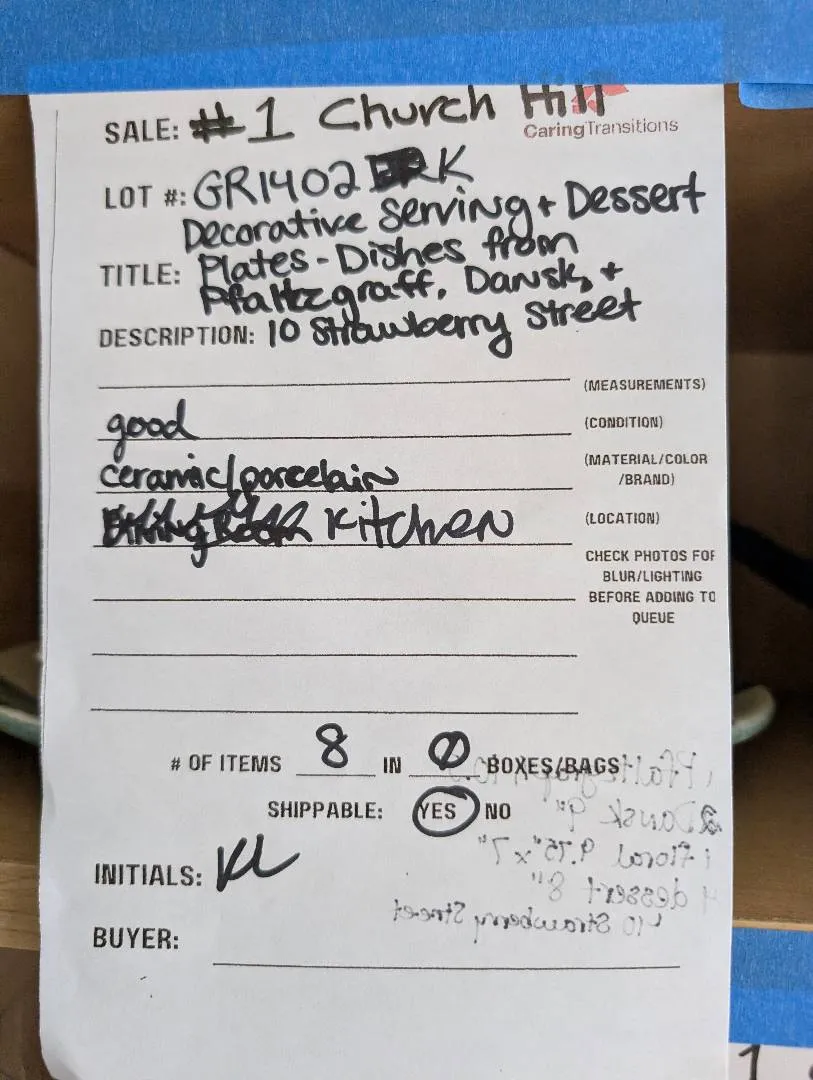 SALE: #1 Church Hill
CaringTransitions
LOT #: GR1402 K
Decorative Serving + Dessert
TITLE: Plates - Dishes from
Pfaltzgraff, Dansk, +
DESCRIPTION: 10 Strawberry Street
(MEASUREMENTS)
good (CONDITION)
ceramic/porcelain (MATERIAL/COLOR
/BRAND)
Dining Room Kitchen (LOCATION)
CHECK PHOTOS FOR
BLUR/LIGHTING
BEFORE ADDING TO
QUEUE
# OF ITEMS 8 IN 0 BOXES/BAGS
1 Pfaltzgraff
SHIPPABLE: YES NO
2 Dansk 9"
1 floral 9.75" x 7"
INITIALS: KL
4 dessert 8"
10 Strawberry Street
BUYER:
1